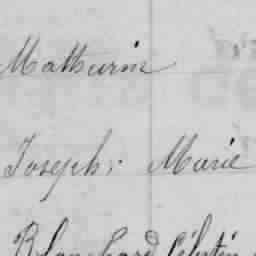 Mathurin
Joseph, Marie
Blanchard Célestin